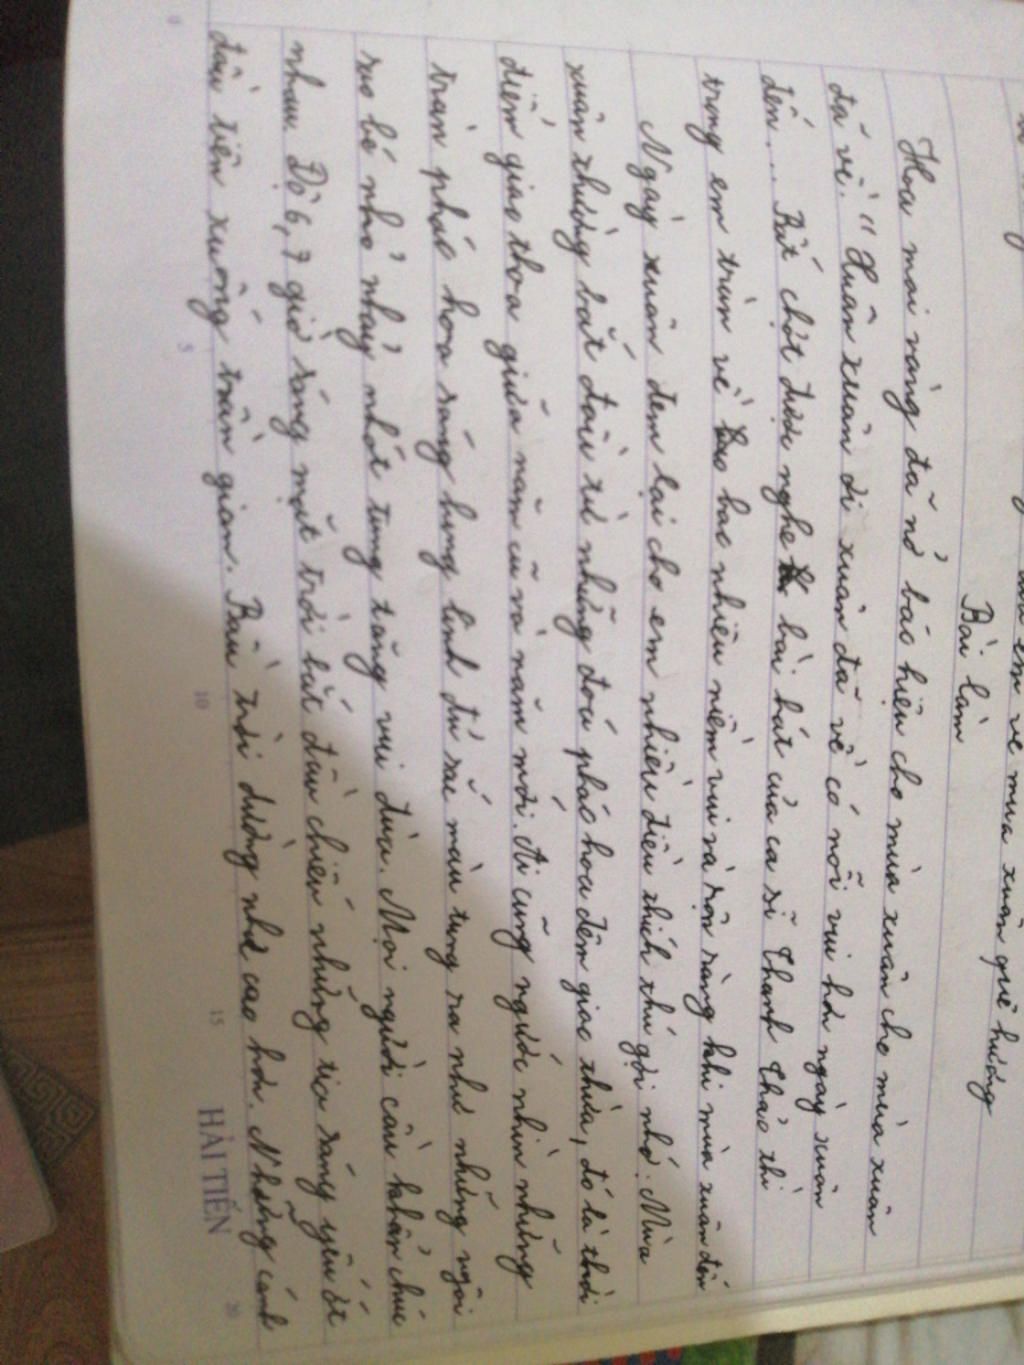 em về mùa xuân quê hương
Bài làm
Hoa mai vàng đã nở báo hiệu cho mùa xuân cho mùa xuân
đã về. "Xuân xuân đi xuân đã về có nỗi vui hơn ngày xuân
đến... Bất chợt được nghe bài hát của ca sĩ Thanh Thảo thì
trong em tràn về bao nhiêu niềm vui và rộn ràng khi mùa xuân đến
Ngày xuân đem lại cho em nhiều điều thích thú gợi nhớ. Mùa
xuân thường bắt đầu từ những đoá pháo hoa đêm giao thừa, đó là thời
điểm giao thoa giữa năm cũ và năm mới. Ai cũng ngước nhìn những
tràn pháo hoa sáng lung linh đủ sắc màu tung ra như những ngôi
sao bé nhỏ nhảy nhót tung tăng vui đùa. Mọi người cầu khẩn chúc
nhau. Độ 6, 7 giờ sáng mặt trời bắt đầu chiếu những tia sáng yếu ớt
đầu tiên xuống trần gian. Bầu trời dường như cao hơn. Những cánh
0 5 10 15 20
HẢI TIẾN